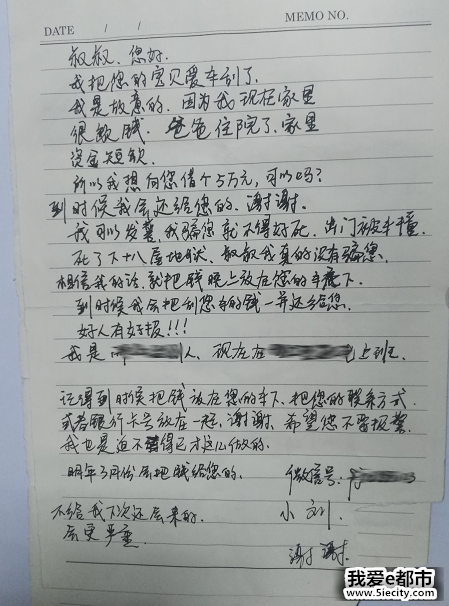 DATE / / MEMO NO.
叔叔、您好.
我把您的宝贝爱车刮了.
我是故意的. 因为我现在家里
很缺钱. 爸爸住院了、家里
资金短缺
所以我想向您借个5万元, 可以吗?
到时候我会还给您的. 谢谢谢.
我可以发誓, 我骗您就不得好死. 出门被车撞.
死了下十八层地狱. 叔叔我真的没有骗您.
相信我的话. 就把钱晚上放在您的车底下.
到时候我会把刮您车的钱一并还给您.
好人有好报!!!
我是 人、现在在 上班.
记得到时候把钱放在您的车下、把您的联系方式
或者银行卡号放在一起, 谢谢. 希望您不要报警.
我也是迫不得已才这么做的.
明年3月份会把钱给您的. 微信号:
不给我下次还会来的. 小刘
会更严重 谢谢.
我爱e都市
www.51ecity.com